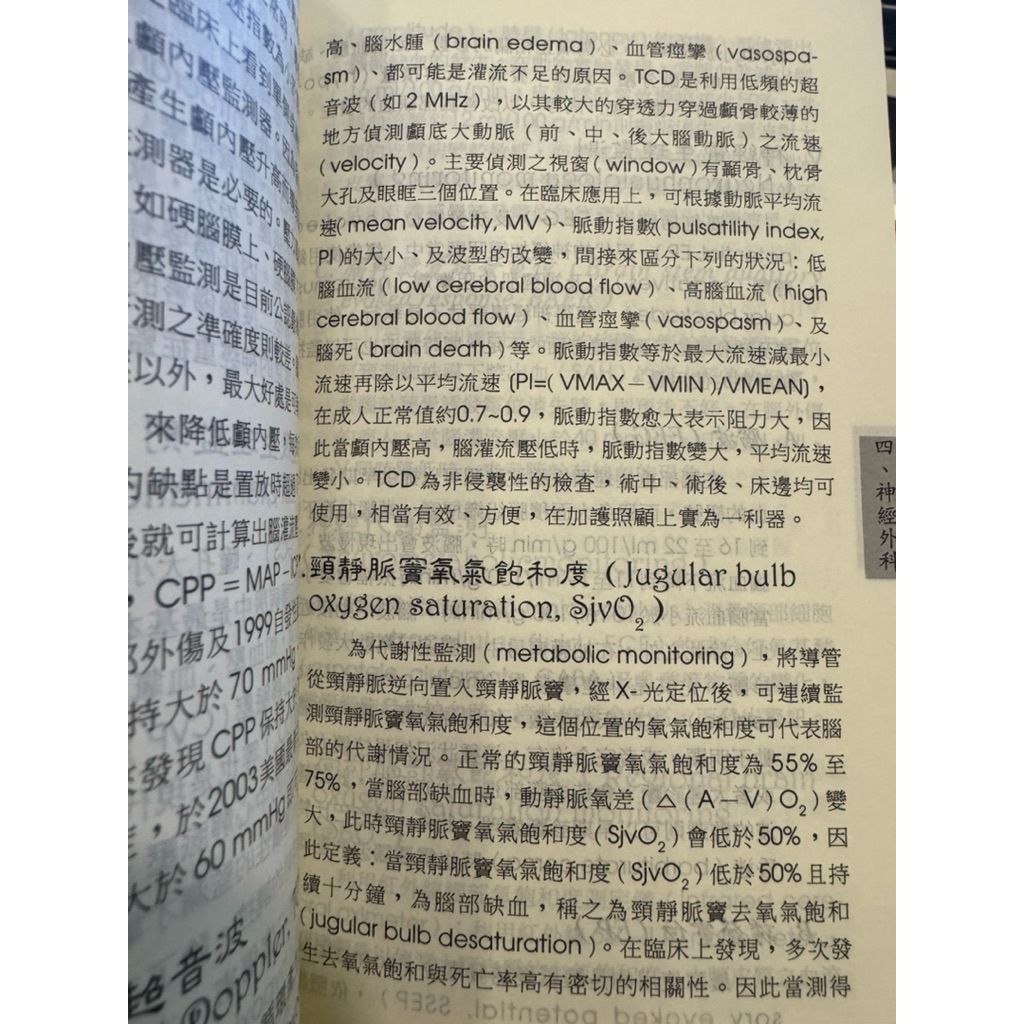 產生顱內壓升高
測器是必要的。
如硬腦膜上、硬腦
壓監測是目前公認
測之準確度則較差
以外，最大好處是
來降低顱內壓，
的缺點是置放時
後就可計算出腦灌流
，CPP = MAP – IC
部外傷及1999
持大於 70 mmHg
發現CPP保持大
，於2003美國
大於 60 mmHg
超音波
Doppler,
高、腦水腫（brain edema）、血管痙攣（vasospa-
sm）、都可能是灌流不足的原因。TCD是利用低頻的超
音波（如2 MHz），以其較大的穿透力穿過顱骨較薄的
地方偵測顱底大動脈（前、中、後大腦動脈）之流速
(velocity)。主要偵測之視窗(window)有顳骨、枕骨
大孔及眼眶三個位置。在臨床應用上，可根據動脈平均流
速(mean velocity, MV)、脈動指數(pulsatility index,
PI)的大小、及波型的改變，間接來區分下列的狀況：低
腦血流（low cerebral blood flow）、高腦血流（high
cerebral blood flow）、血管痙攣（vasospasm）、及
腦死（brain death）等。脈動指數等於最大流速減最小
流速再除以平均流速〔PI=（VMAX－VMIN）/VMEAN〕，
在成人正常值約0.7~0.9，脈動指數愈大表示阻力大，因
此當顱內壓高，腦灌流壓低時，脈動指數變大，平均流速
變小。TCD 為非侵襲性的檢查，術中、術後、床邊均可
使用，相當有效、方便，在加護照顧上實為一利器。
頸靜脈竇氧氣飽和度（Jugular bulb
oxygen saturation, SjvO2）
為代謝性監測（metabolic monitoring），將導管
從頸靜脈逆向置入頸靜脈竇，經 X- 光定位後，可連續監
測頸靜脈竇氧氣飽和度，這個位置的氧氣飽和度可代表腦
部的代謝情況。正常的頸靜脈竇氧氣飽和度為 55% 至
75%，當腦部缺血時，動靜脈氧差（△（A－V）O2）變
大，此時頸靜脈竇氧氣飽和度（SjvO2）會低於50%，因
此定義：當頸靜脈竇氧氣飽和度（SjvO2）低於50%且持
續十分鐘，為腦部缺血，稱之為頸靜脈竇去氧氣飽和
（jugular bulb desaturation）。在臨床上發現，多次發
生去氧氣飽和與死亡率高有密切的相關性。因此當測得
四、神經外科